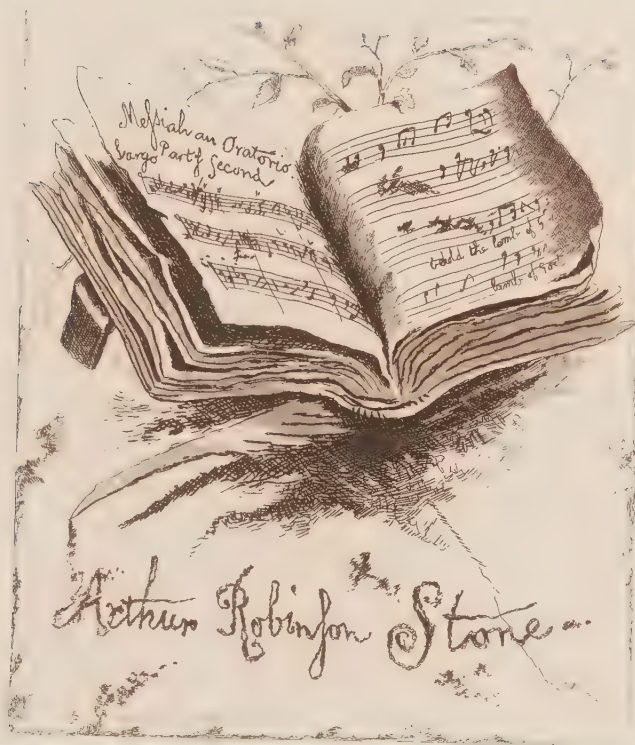 Meſsiah an Oratorio
Largo Part y Second
behold the lamb of G
lamb of God
Arthur Robinſon Stone